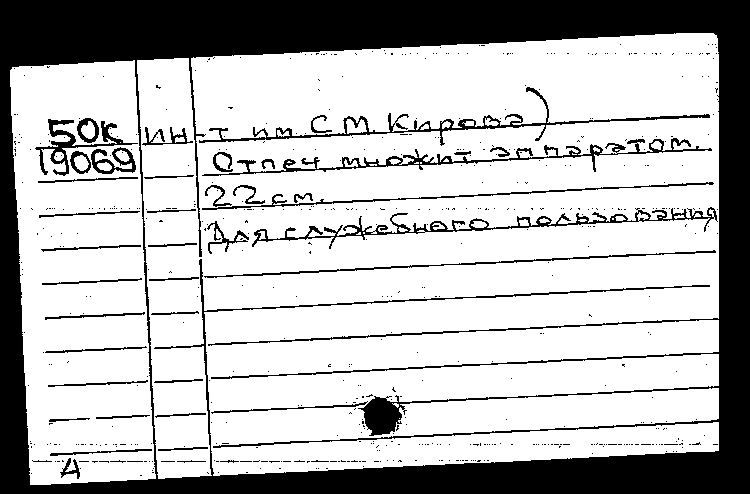 50к ин-т им С.М. Кирова)
19069 Отпеч множит аппаратом.
22 см.
Для служебного пользования
4